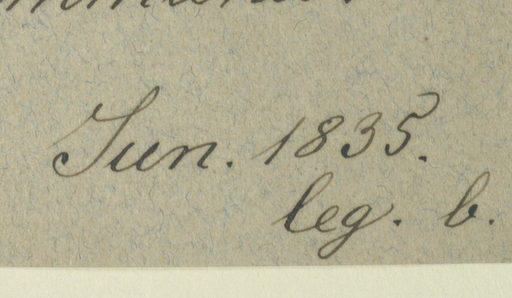 Jun. 1835.
leg. b.